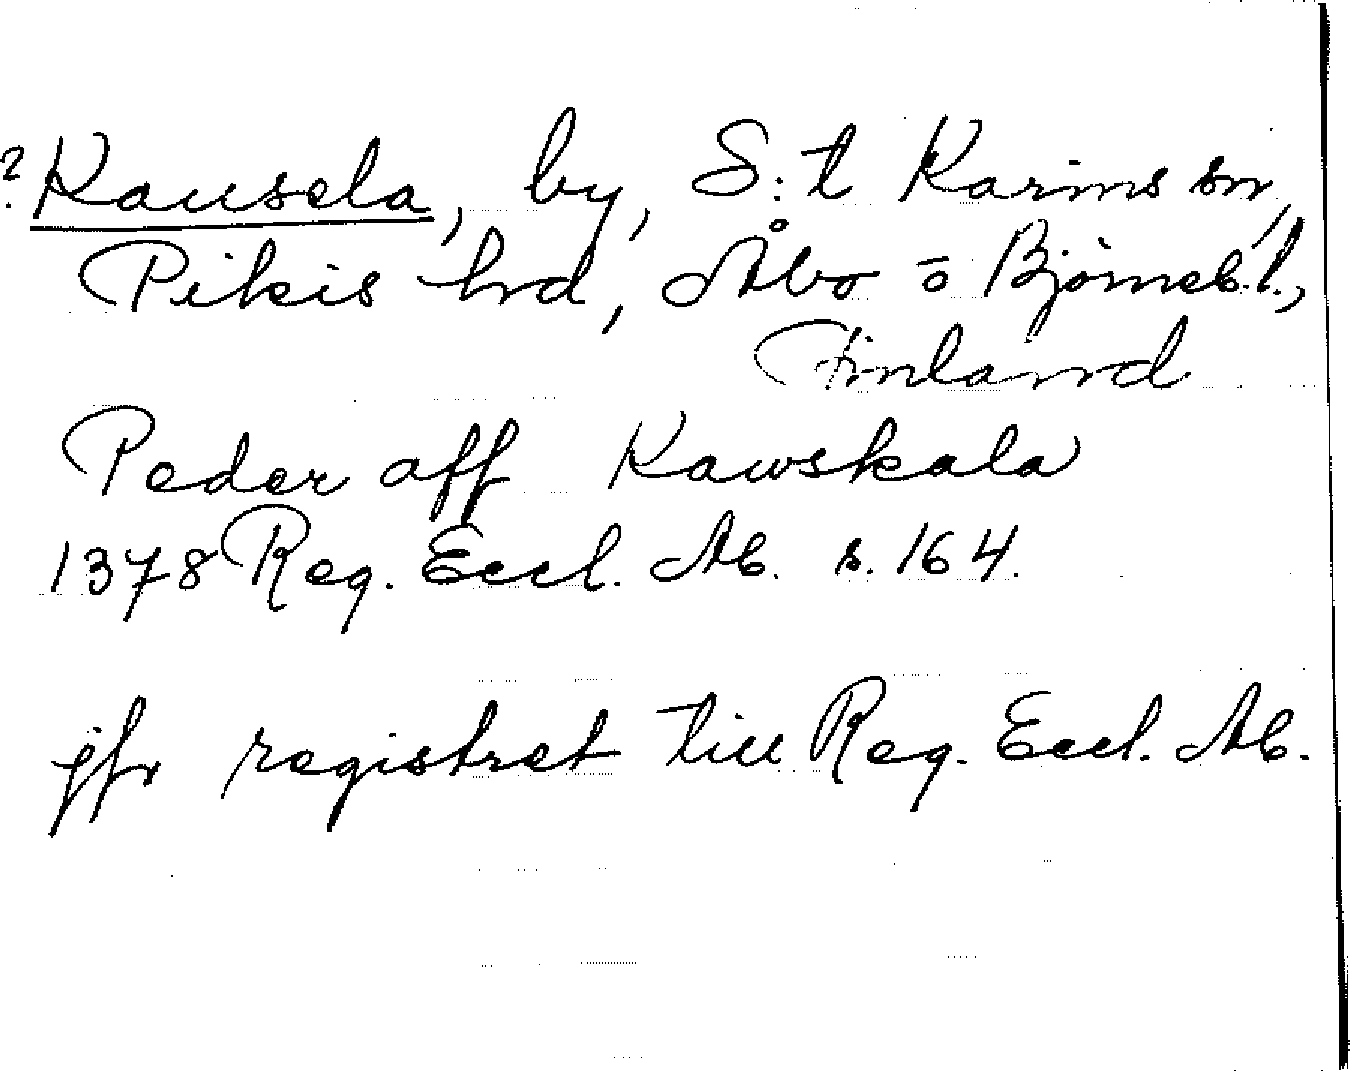 ? Kausela, by, S:t Karins sn,
Pikis hrd, Åbo o Björneb.l.,
Finland
Peder aff Kawskala
1378 Reg. Eccl. Ab. s. 164.
jfr registret till Reg. Eccl. Ab.